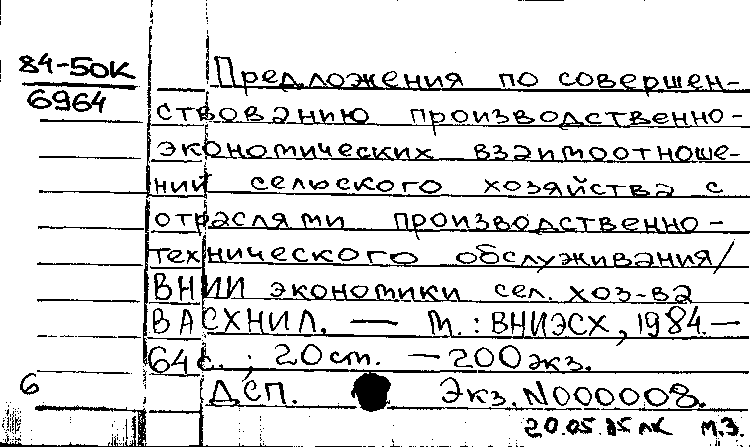 84-50К
6964
Предложения по совершен-
ствованию производственно-
экономических взаимоотноше-
ний сельского хозяйства с
отраслями производственно-
технического обслуживания/
ВНИИ экономики сел. хоз-ва
ВАСХНИЛ. — М.: ВНИЭСХ, 1984.—
64 с.; 20 см. — 200 экз.
6 ДСП. Экз. N000008.
20.05.85 лк М.З.